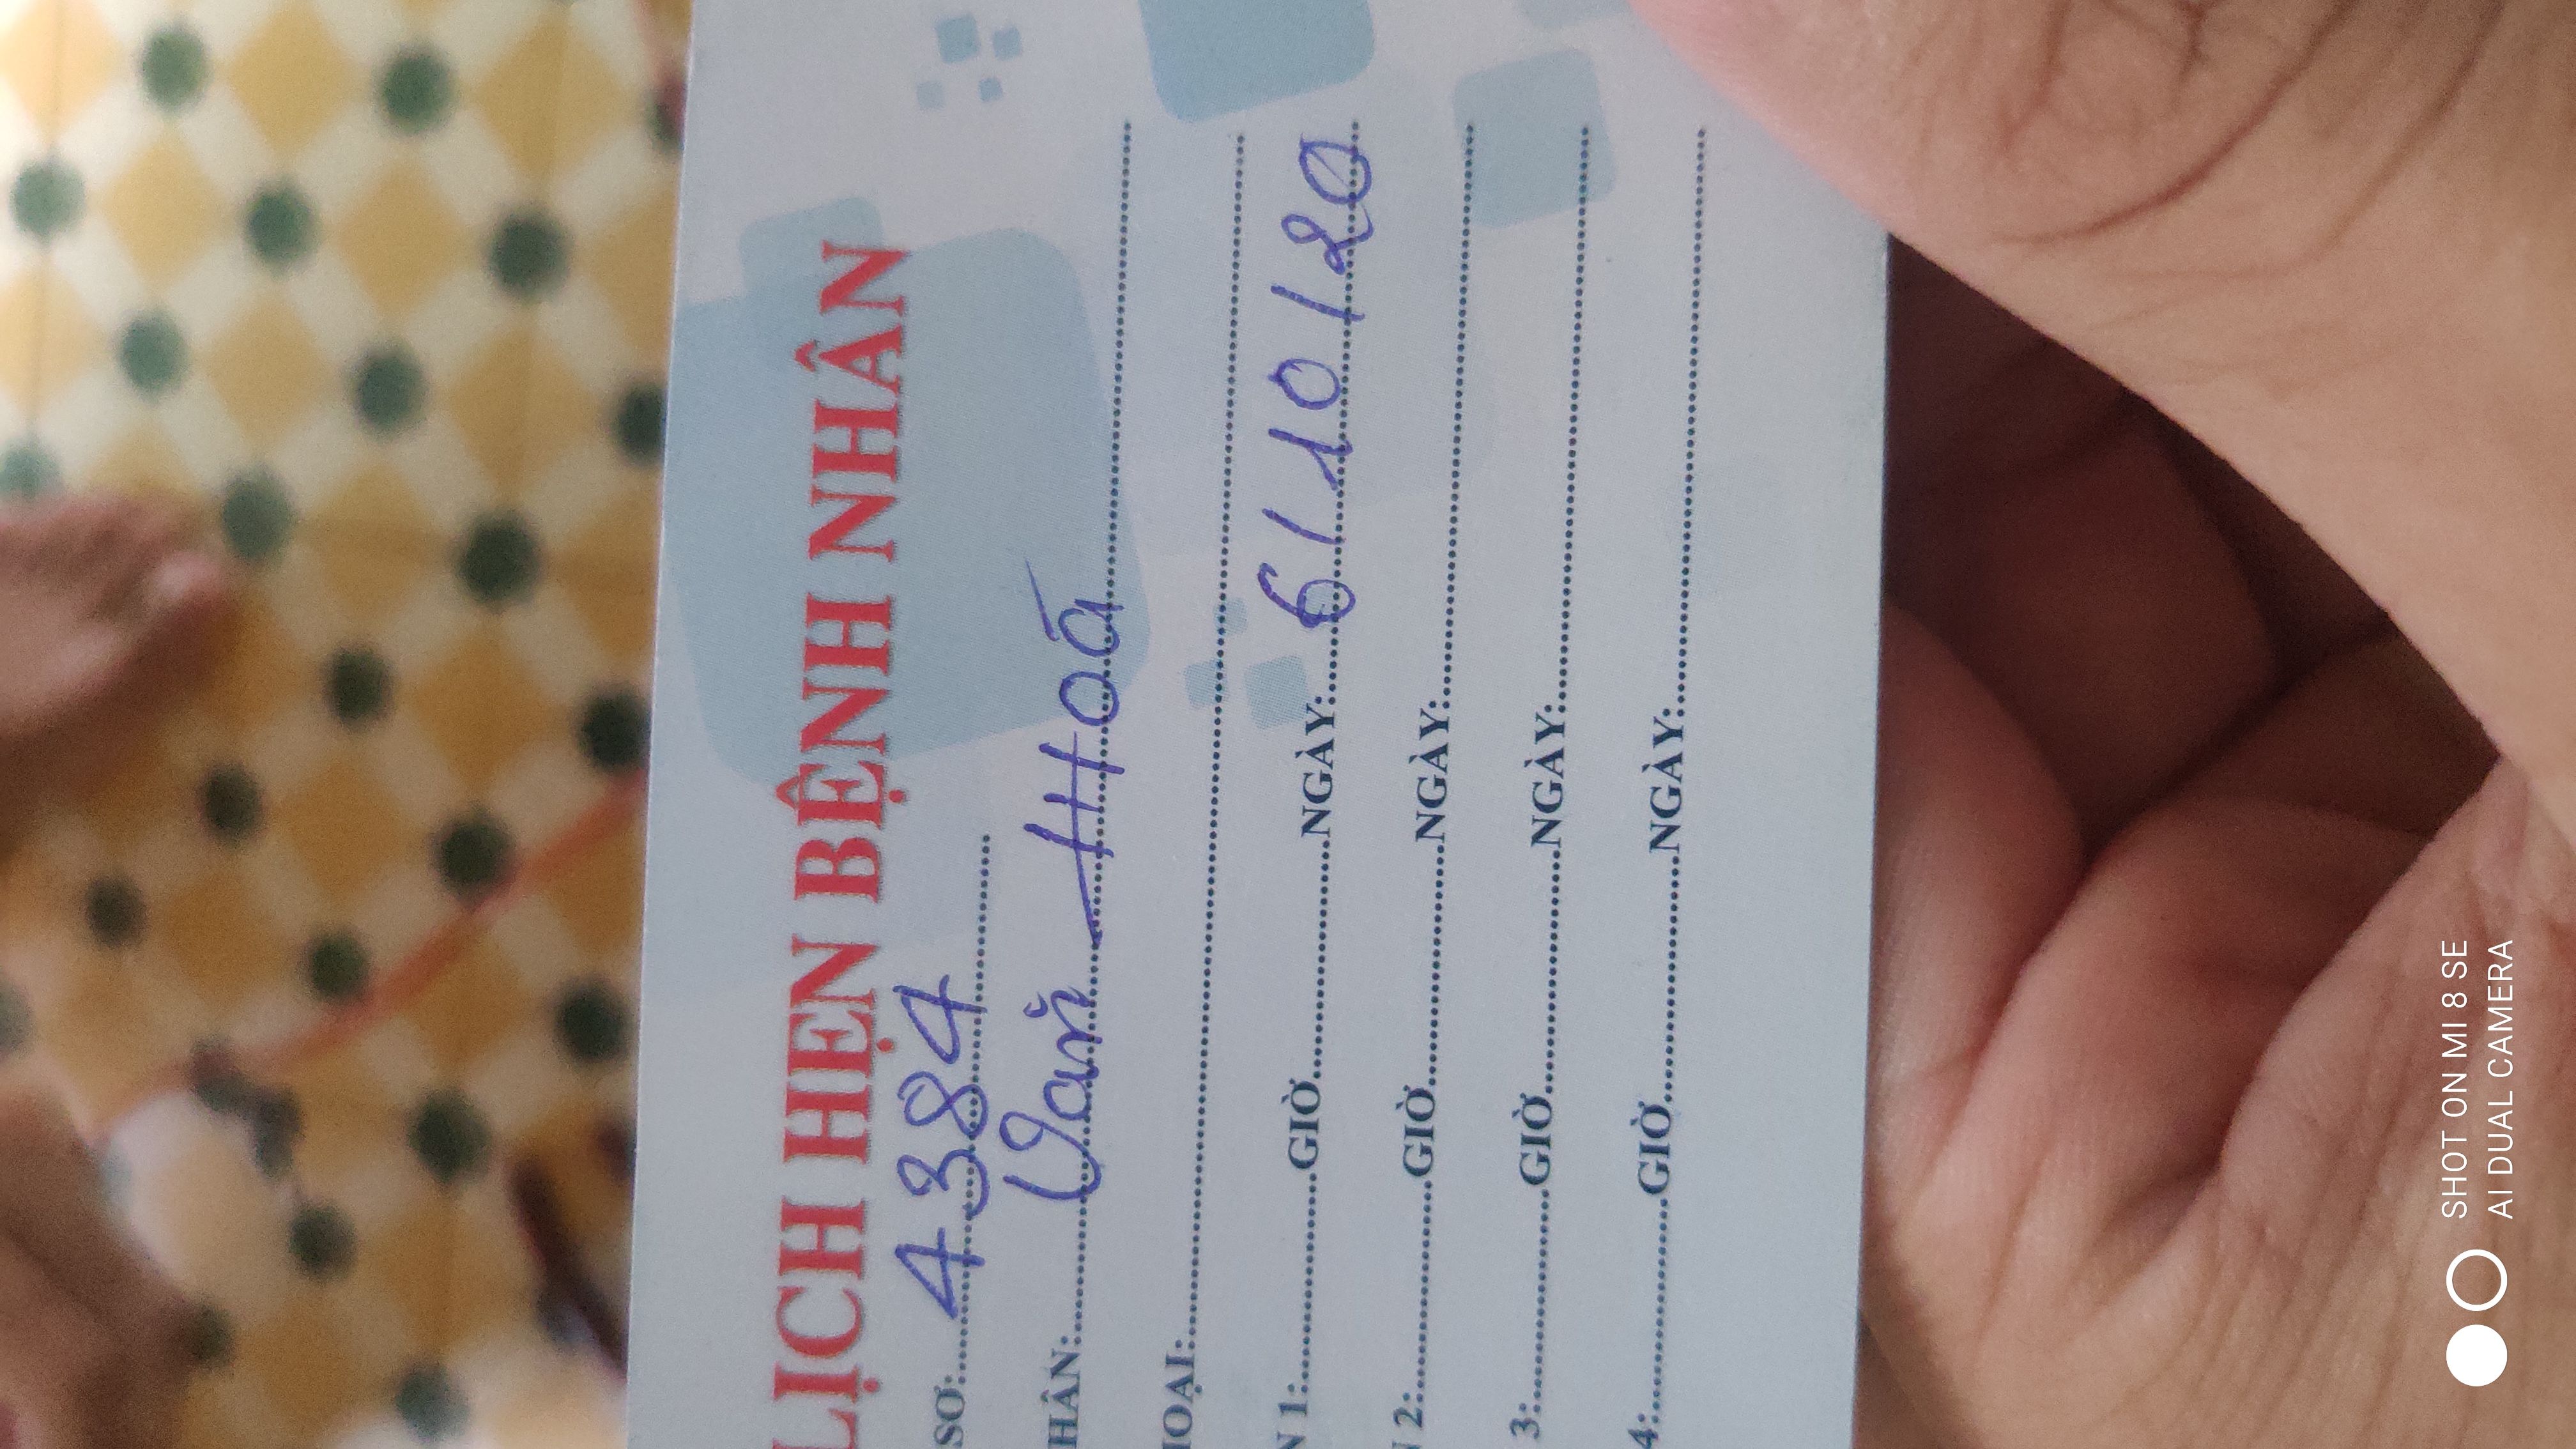 LỊCH HẸN BỆNH NHÂN
SƠ:............4384............
HÂN:............Văn Hoá............
IOẠI:............
N 1:............GIỜ............NGÀY:............6/10/20
2:............GIỜ............NGÀY:............
3:............GIỜ............NGÀY:............
4:............GIỜ............NGÀY:............
SHOT ON MI 8 SE
AI DUAL CAMERA